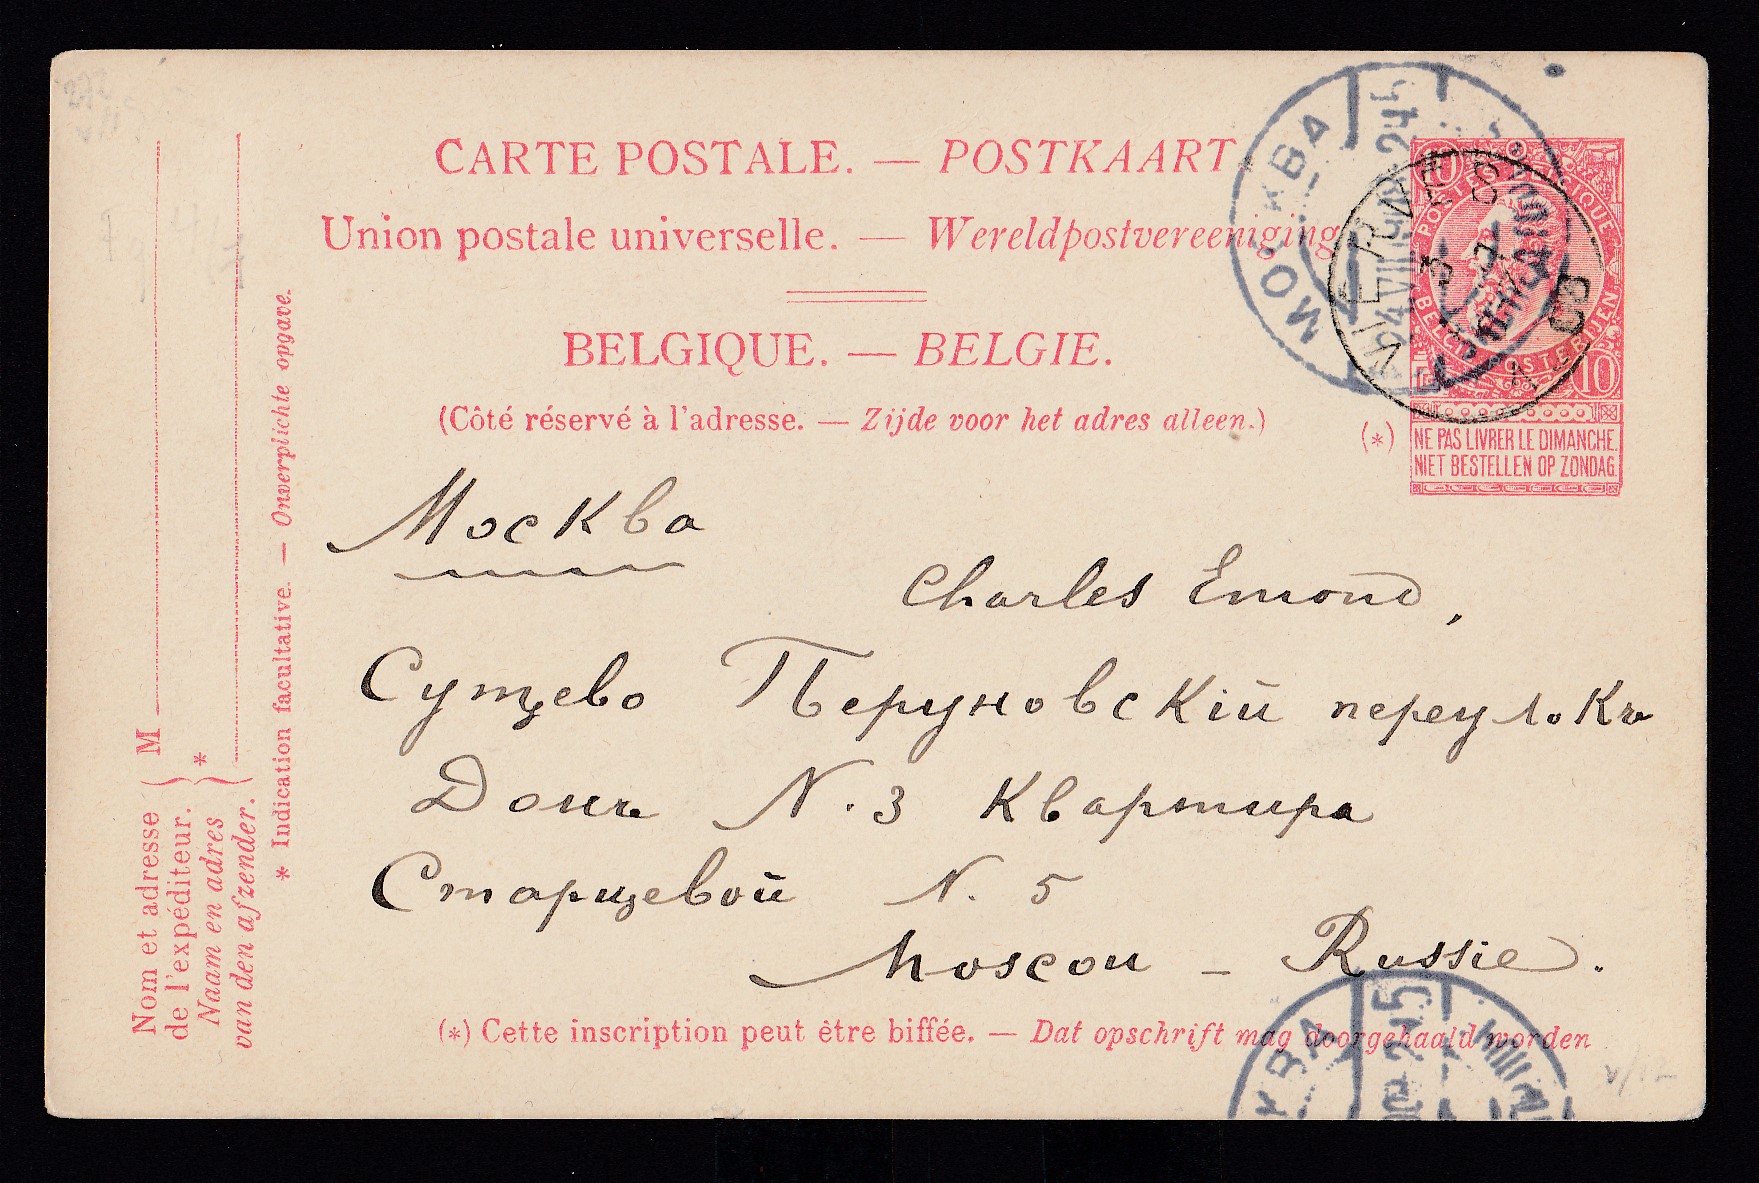 CARTE POSTALE. — POSTKAART.
Union postale universelle. — Wereldpostvereeniging
BELGIQUE. — BELGIE.
(Côté réservé à l'adresse. — Zijde voor het adres alleen.)
МОСКВА
VILRYCK
10
POSTES BELGIQUE
BELGIË POSTERIJEN
10
(*)
NE PAS LIVRER LE DIMANCHE.
NIET BESTELLEN OP ZONDAG.
Москва
Charles Emond,
Сущево Перуновскій переулокъ
Домъ N. 3 Квартира
Старцевой N. 5
Moscou – Russie.
(*) Cette inscription peut être biffée. — Dat opschrift mag doorgehaald worden
Nom et adresse
de l'expéditeur.
Naam en adres
van den afzender.
M
*
* Indication facultative. — Onverplichte opgave.